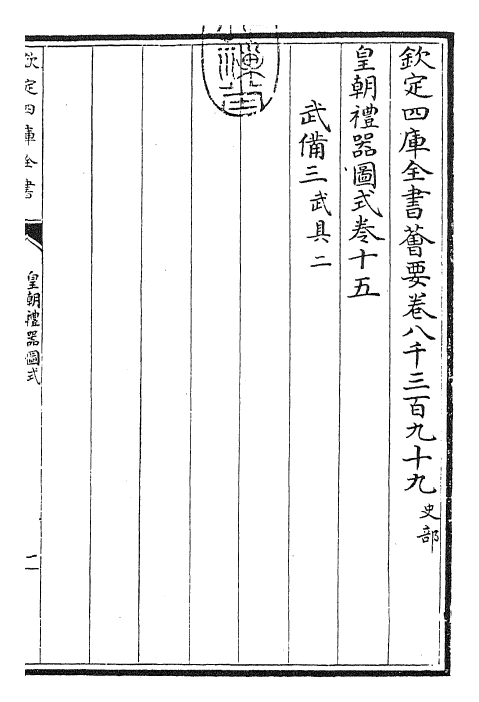 欽定四庫全書薈要卷八千三百九十九 史部
皇朝禮器圖式卷十五
武備三 武具二
欽定四庫全書
皇朝禮器圖式